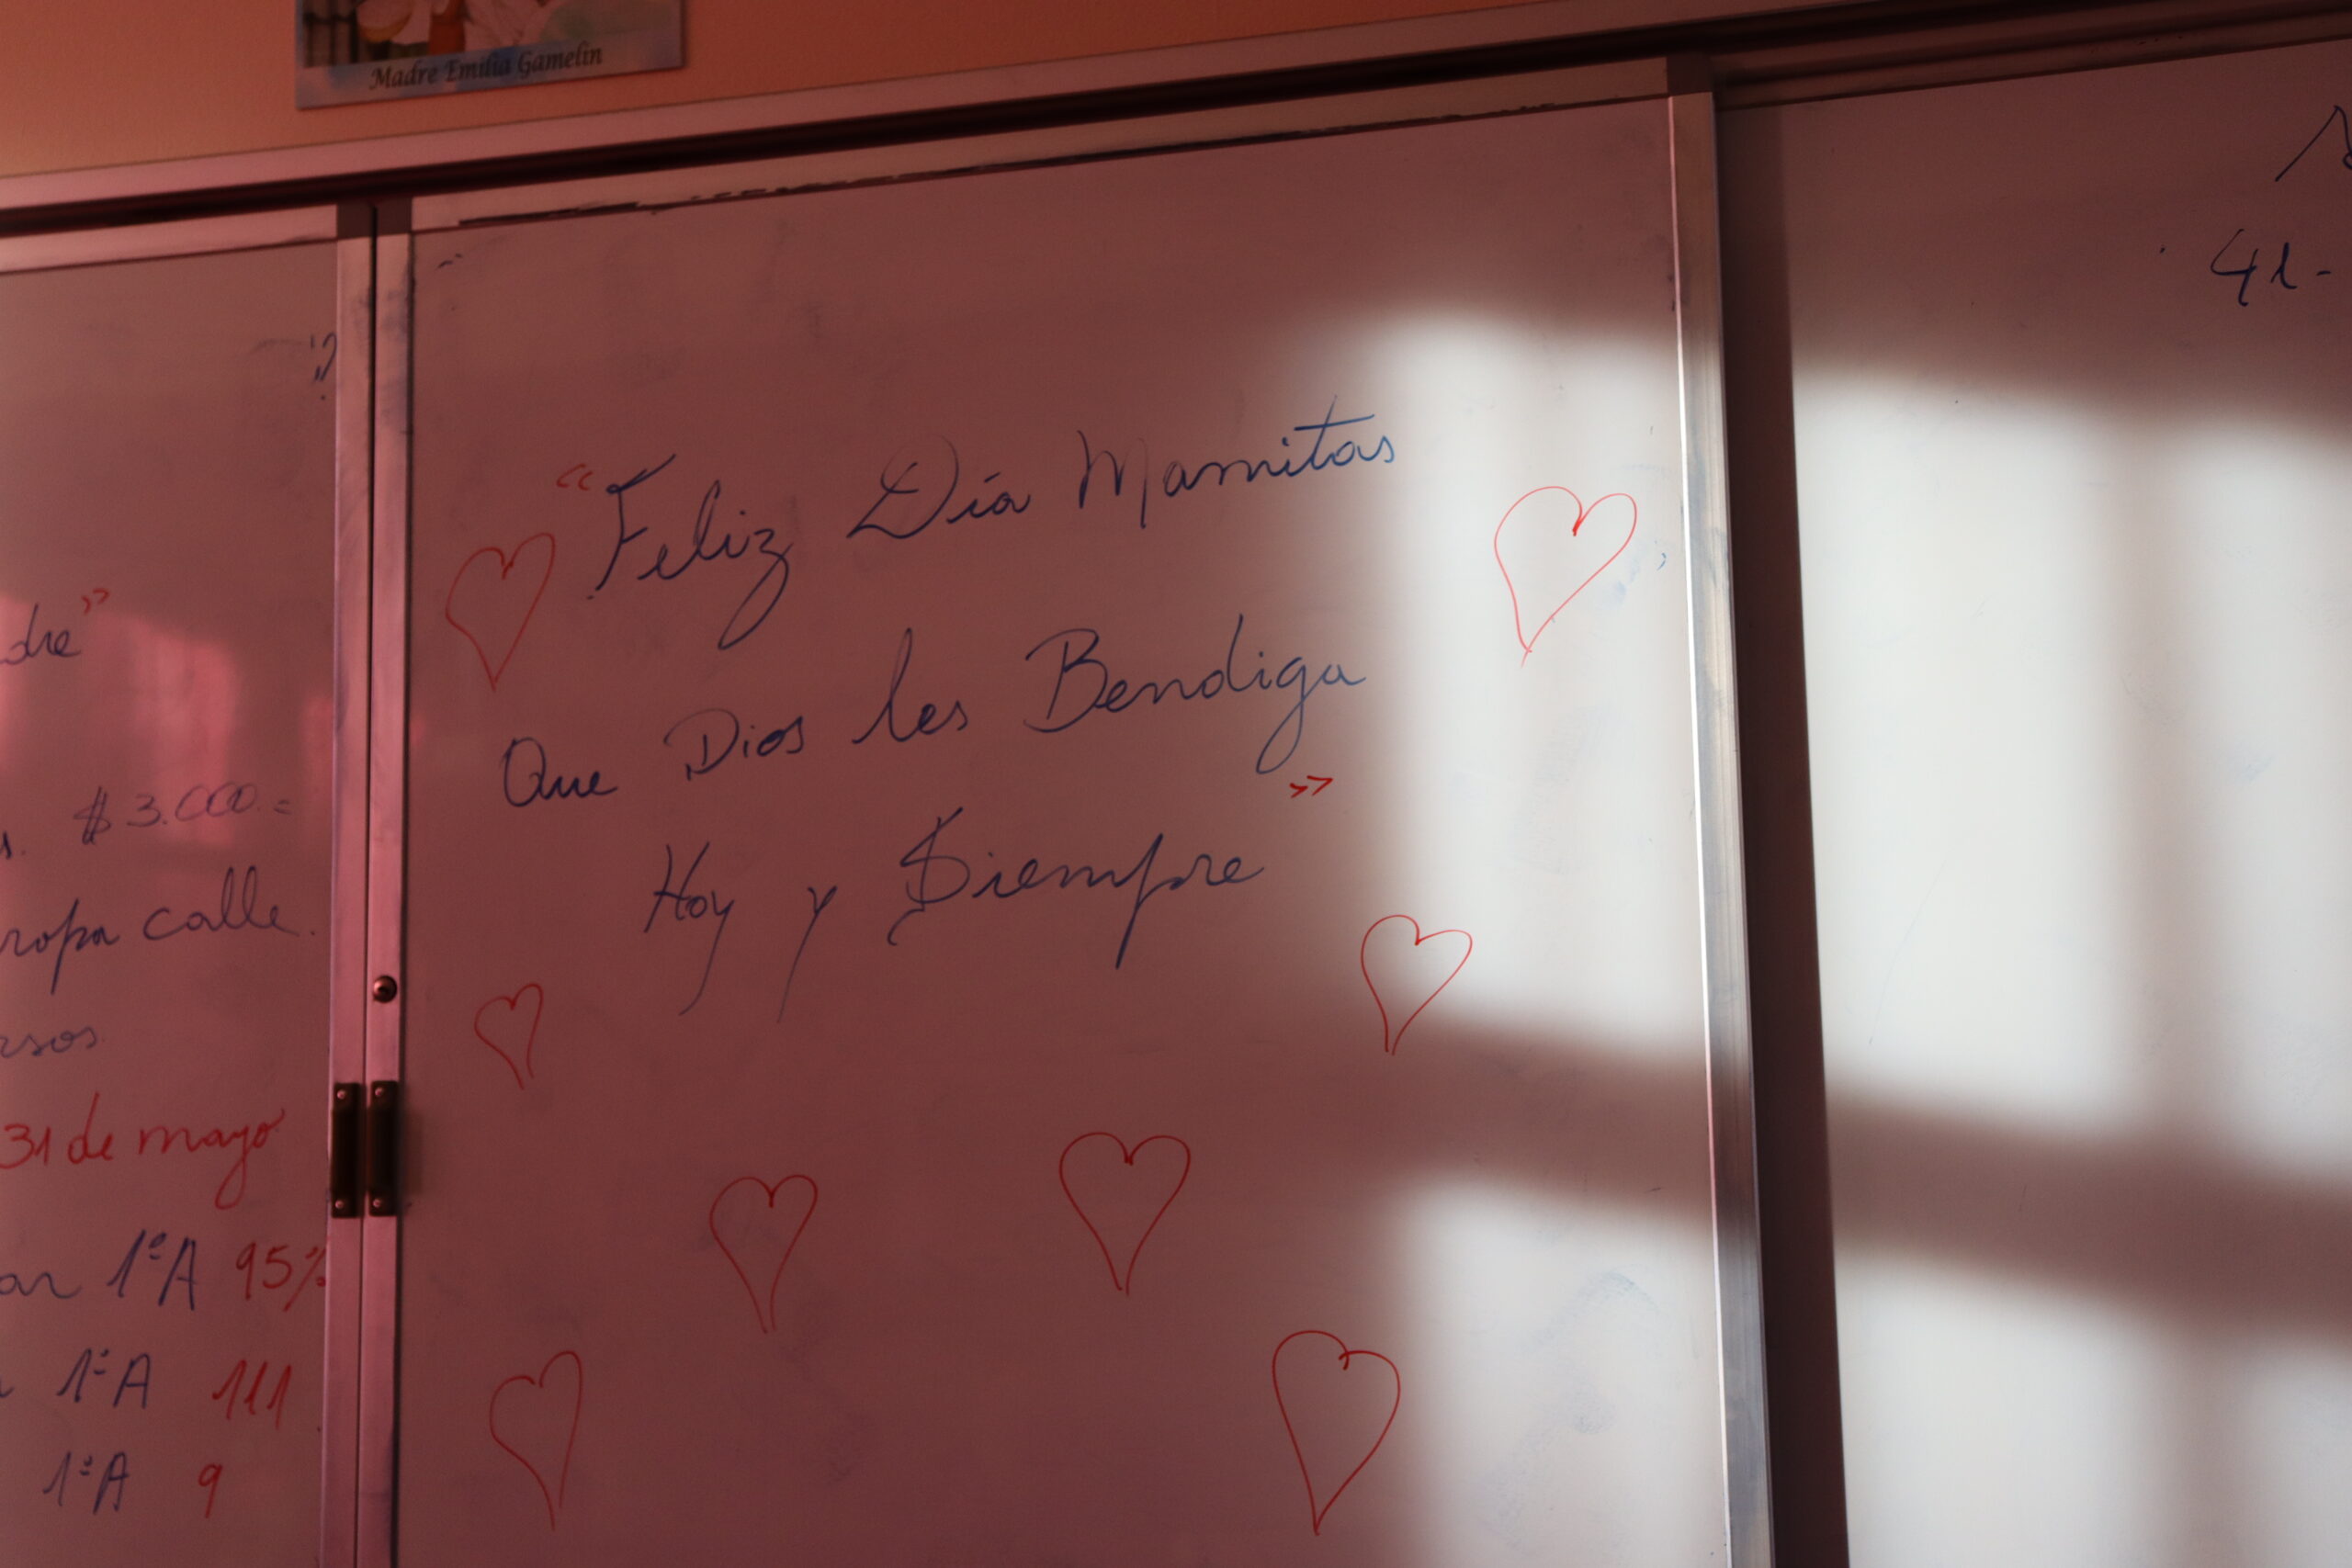 Madre Emilia Gamelin
"Feliz Día Mamitas
Que Dios les Bendiga
Hoy y Siempre"
dre"
$ 3.000.=
ropa calle.
rsos
31 de mayo
ar 1ºA 95%
1ºA 111
1ºA 9
41-